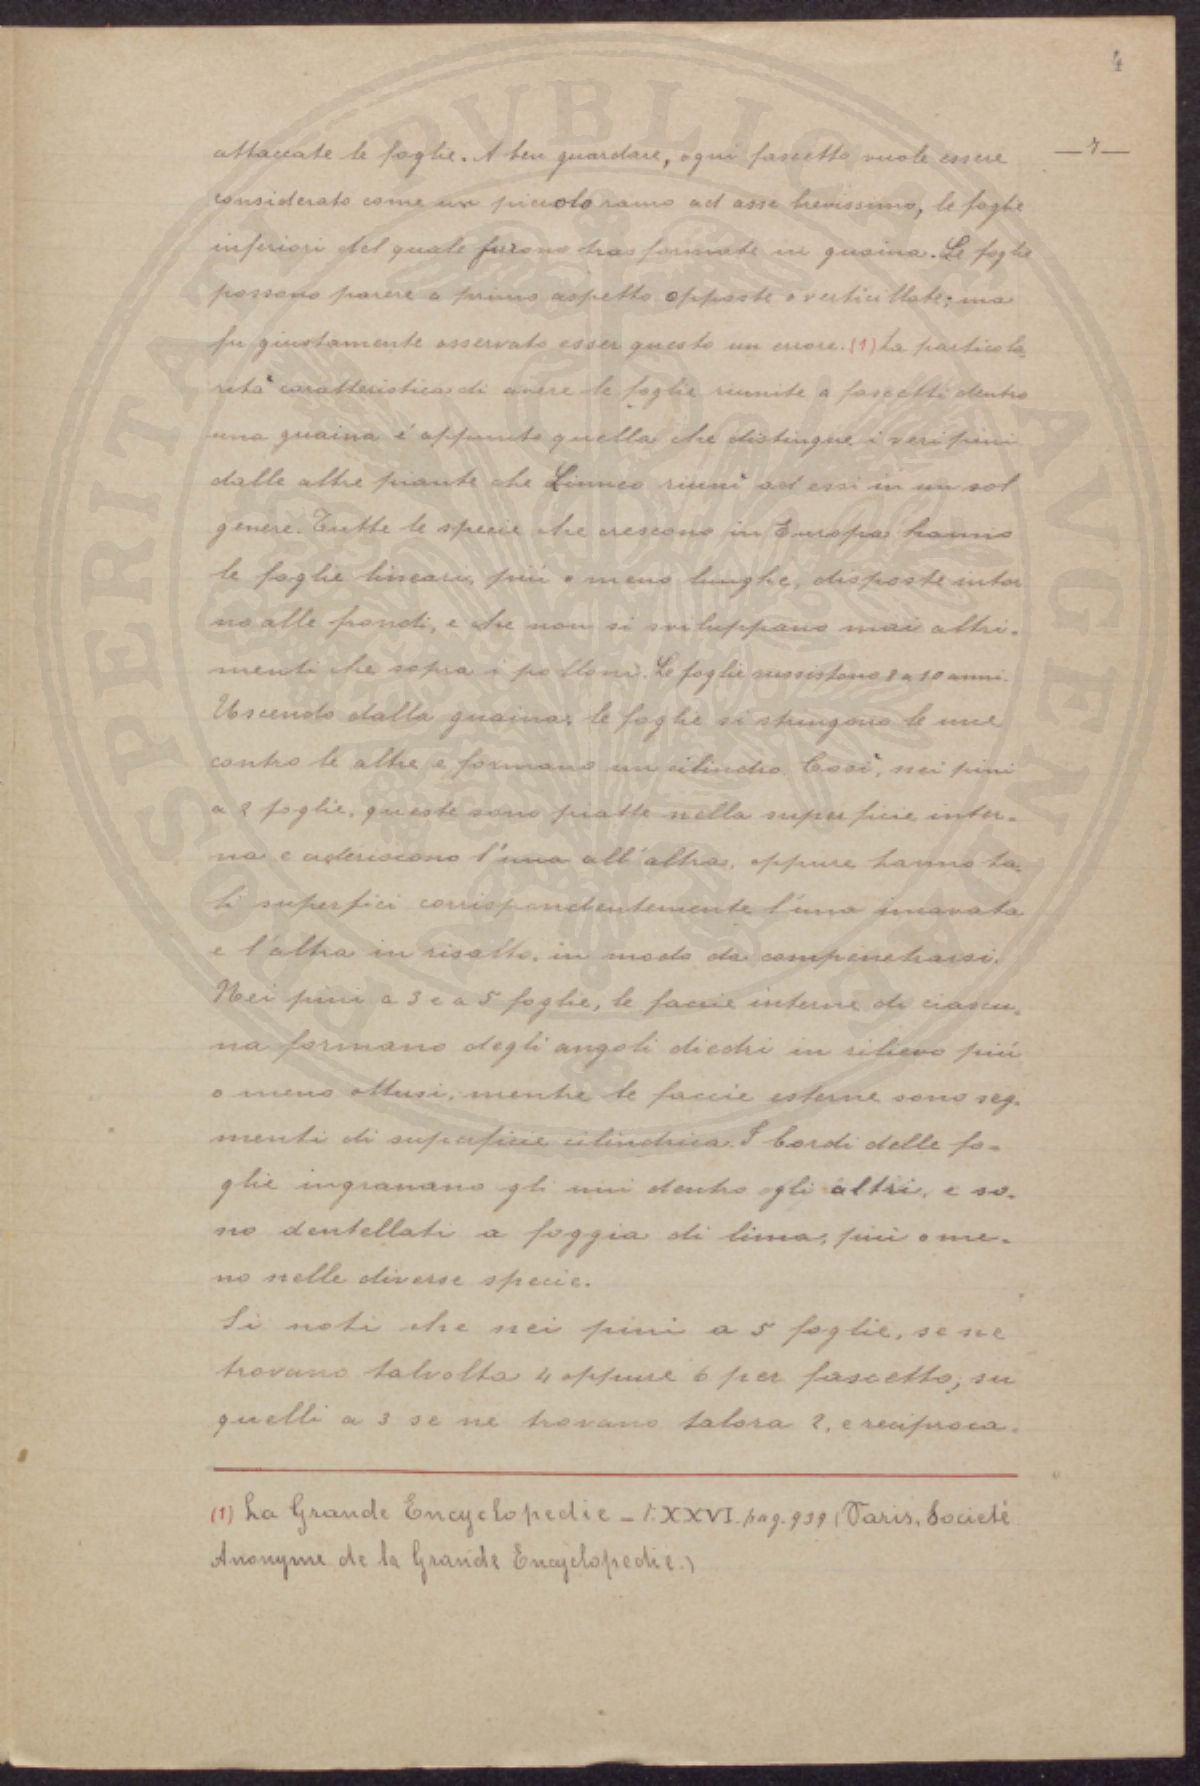 4
— 7 —
attaccate le foglie. A ben guardare, ogni fascetto vuole essere
considerato come un piccolo ramo ad asse brevissimo, le foglie
inferiori del quale furono trasformate in guaina. Le foglie
possono parere a primo aspetto opposte o verticillate; ma
fu giustamente osservato esser questo un errore. (1) La particola
rità caratteristica di avere le foglie riunite a fascetti dentro
una guaina é appunto quella che distingue i veri pini
dalle altre piante che Linneo riunì ad essi in un sol
genere. Tutte le specie che crescono in Europa hanno
le foglie lineari, piú o meno lunghe, disposte intor
no alle frondi, e che non si sviluppano mai altri-
menti che sopra i polloni. Le foglie sussistono 8 a 10 anni.
Uscendo dalla guaina, le foglie si stringono le une
contro le altre e formano un cilindro. Cosí, nei pini
a 2 foglie, queste sono piatte nella superficie inter-
na e aderiscono l'una all'altra, oppure hanno ta-
li superfici corrispondentemente l'una incavata
e l'altra in risalto, in modo da compenetrarsi.
Nei pini a 3 e a 5 foglie, le faccie interne di ciascu-
na formano degli angoli diedri in rilievo piú
o meno ottusi, mentre le faccie esterne sono seg-
menti di superficie cilindrica. I bordi delle fo-
glie ingranano gli uni dentro gli altri, e so-
no dentellati a foggia di lima, piú o me-
no nelle diverse specie.
Si noti che nei pini a 5 foglie, se ne
trovano talvolta 4 oppure 6 per fascetto; su
quelli a 3 se ne trovano talora 2, e reciproca-
(1) La Grande Encyclopedie – t. XXVI. pag. 939 (Paris, Societé
Anonyme de la Grande Encyclopedie.)
PROSPERITATI PVBLICAE AVGENDAE